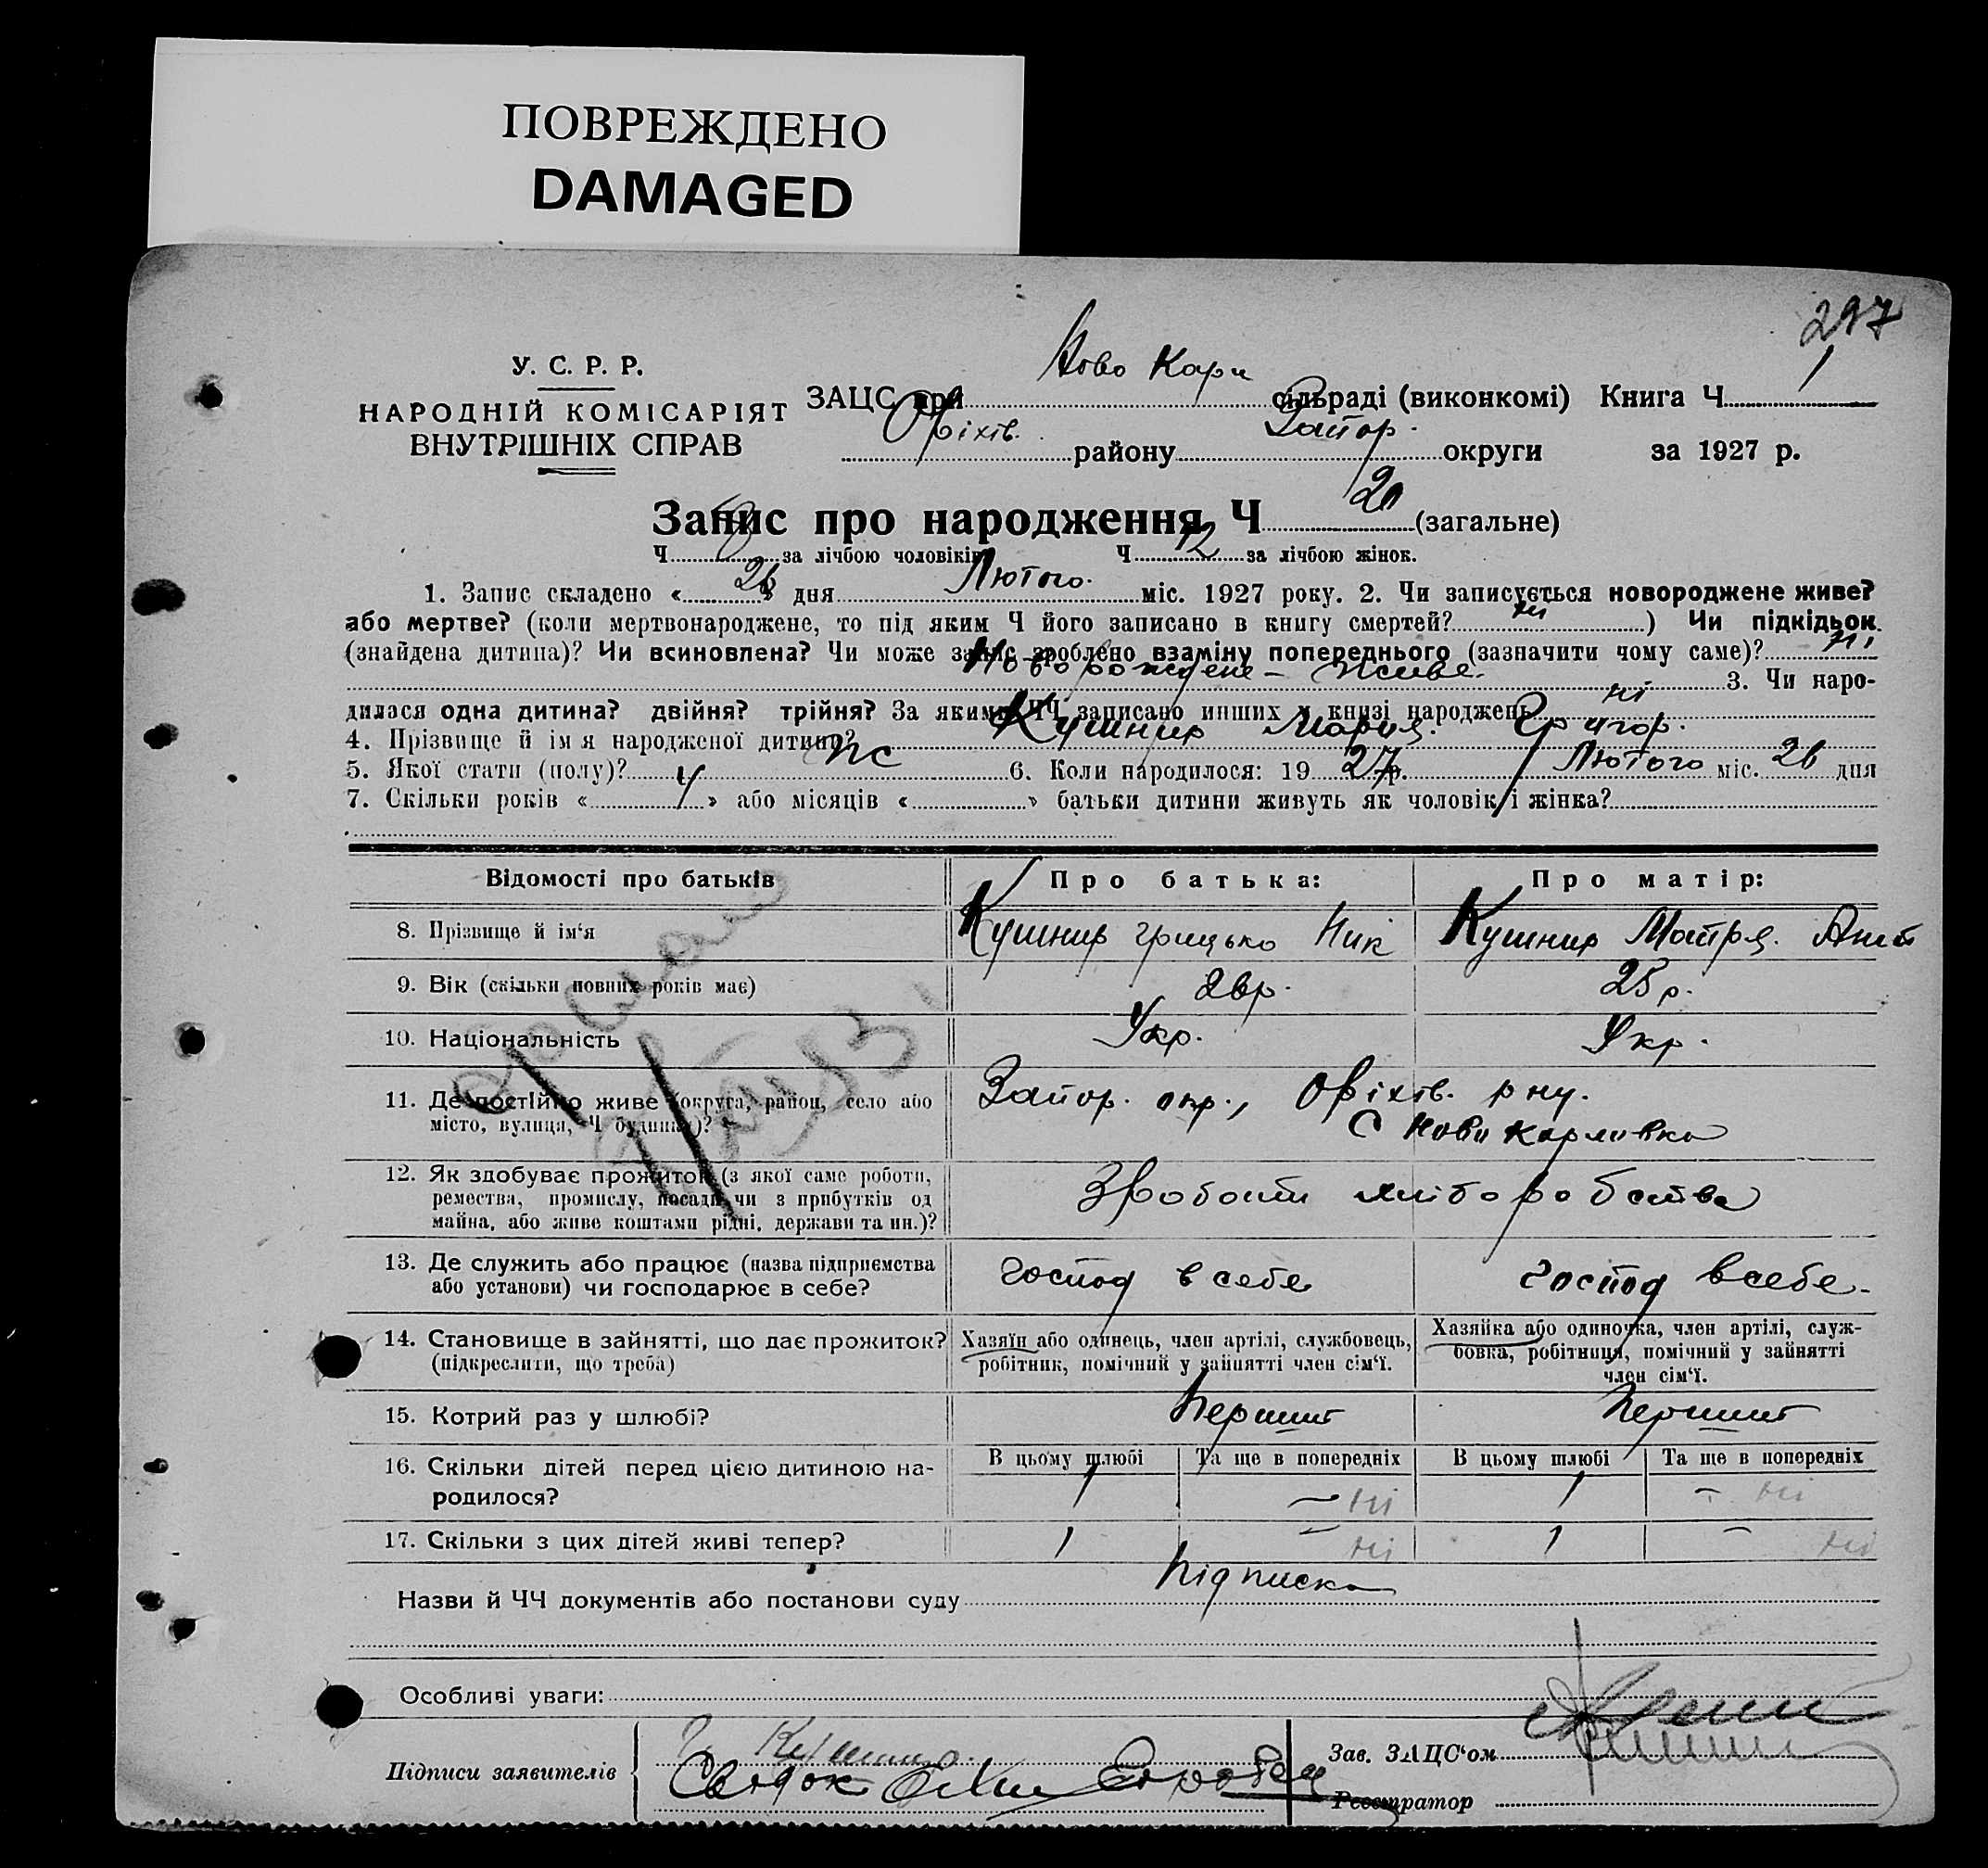 ПОВРЕЖДЕНО
DAMAGED
297
У. С. Р. Р.
НАРОДНІЙ КОМІСАРІЯТ
ВНУТРІШНІХ СПРАВ
ЗАЦС при Ново Карл сільраді (виконкомі) Книга Ч 1
Оріхів. району Запор. округи за 1927 р.
Запис про народження Ч 20 (загальне)
Ч 8 за лічбою чоловіків Ч 12 за лічбою жінок.
1. Запис складено « 26 » дня Лютого. міс. 1927 року. 2. Чи записується новороджене живе?
або мертве? (коли мертвонароджене, то під яким Ч його записано в книгу смертей? ні ) Чи підкідьок
(знайдена дитина)? Чи всиновлена? Чи може запис зроблено взаміну попереднього (зазначити чому саме)? ні
Новорождене – живе. 3. Чи наро-
дилася одна дитина? двійня? трійня? За якими ЧЧ записано инших у книзі народжень ні
4. Прізвище й ім я народженої дитини? Кушнир Мария. Григор.
5. Якої стати (полу)? жс 6. Коли народилося: 19 27 р. Лютого міс. 26 дня
7. Скільки років « 4 » або місяців « » батьки дитини живуть як чоловік і жінка?
Відомості про батьків
Про батька:
Про матір:
8. Прізвище й ім‘я
Кушнир Грицько Ник
Кушнир Мотря. Ант
9. Вік (скільки повних років має)
26р.
25 р.
10. Національність
Укр.
Укр.
11. Де постійно живе (округа, район, село або
місто, вулиця, Ч будинка)?
Запор. окр., Оріхів. рну.
С Ново Карливка
12. Як здобуває прожиток (з якої саме роботи,
ремества, промислу, посади чи з прибутків од
майна, або живе коштами рідні, держави та ин.)?
Зроботи хліборобства
13. Де служить або працює (назва підприємства
або установи) чи господарює в себе?
господ в себе
господ всебе.
14. Становище в зайнятті, що дає прожиток?
(підкреслити, що треба)
Хазяїн або одинець, член артілі, службовець,
робітник, помічний у зайнятті член сім‘ї.
Хазяйка або одиночка, член артілі, служ-
бовка, робітниця, помічний у зайнятті
член сім‘ї.
15. Котрий раз у шлюбі?
Перший
Перший
16. Скільки дітей перед цією дитиною на-
родилося?
В цьому шлюбі
Та ще в попередніх
В цьому шлюбі
Та ще в попередніх
1 – ні 1 – ні
17. Скільки з цих дітей живі тепер?
1 – ні 1 – ні
Назви й ЧЧ документів або постанови суду Підписка
Особливі уваги:
Підписи заявителів
Г. Кушнир.
Свідок
Зав. ЗАЦС‘ом
Реєстратор